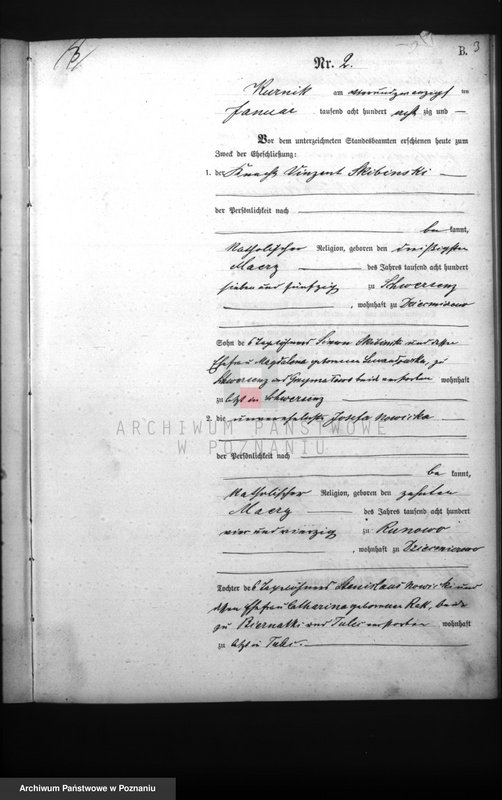 B. 3
Nr. 2.
Kurnik am vierundzwanzigsten
Januar tausend acht hundert acht zig und —
Vor dem unterzeichneten Standesbeamten erschienen heute zum
Zweck der Eheschließung:
1. der Knecht Vinzent Skibinski
der Persönlichkeit nach
be kannt,
katholischer Religion, geboren den dreißigsten
Maerz des Jahres tausend acht hundert
sieben und fünfzig zu Schwersenz
, wohnhaft zu Dziecmierowo
Sohn des Tagelöhners Skibinski und dessen
Ehefrau Magdalena geborenen zu
Schwersenz und beide verstorben wohnhaft
zu letzt in Schwersenz
2. die unverehelichte Josefa Nowicka
ARCHIWUM PAŃSTWOWE
W POZNANIU
der Persönlichkeit nach
be kannt,
katholischer Religion, geboren den zehnten
Maerz des Jahres tausend acht hundert
vier und vierzig zu Runowo
, wohnhaft zu Dziecmierowo
Tochter des Tagelöhners Stanislaus Nowicki und
dessen Ehefrau Catharina geborenen Rak, beide
zu Biernatki und Tulce verstorben wohnhaft
zu letzt in Tulce.
Archiwum Państwowe w Poznaniu